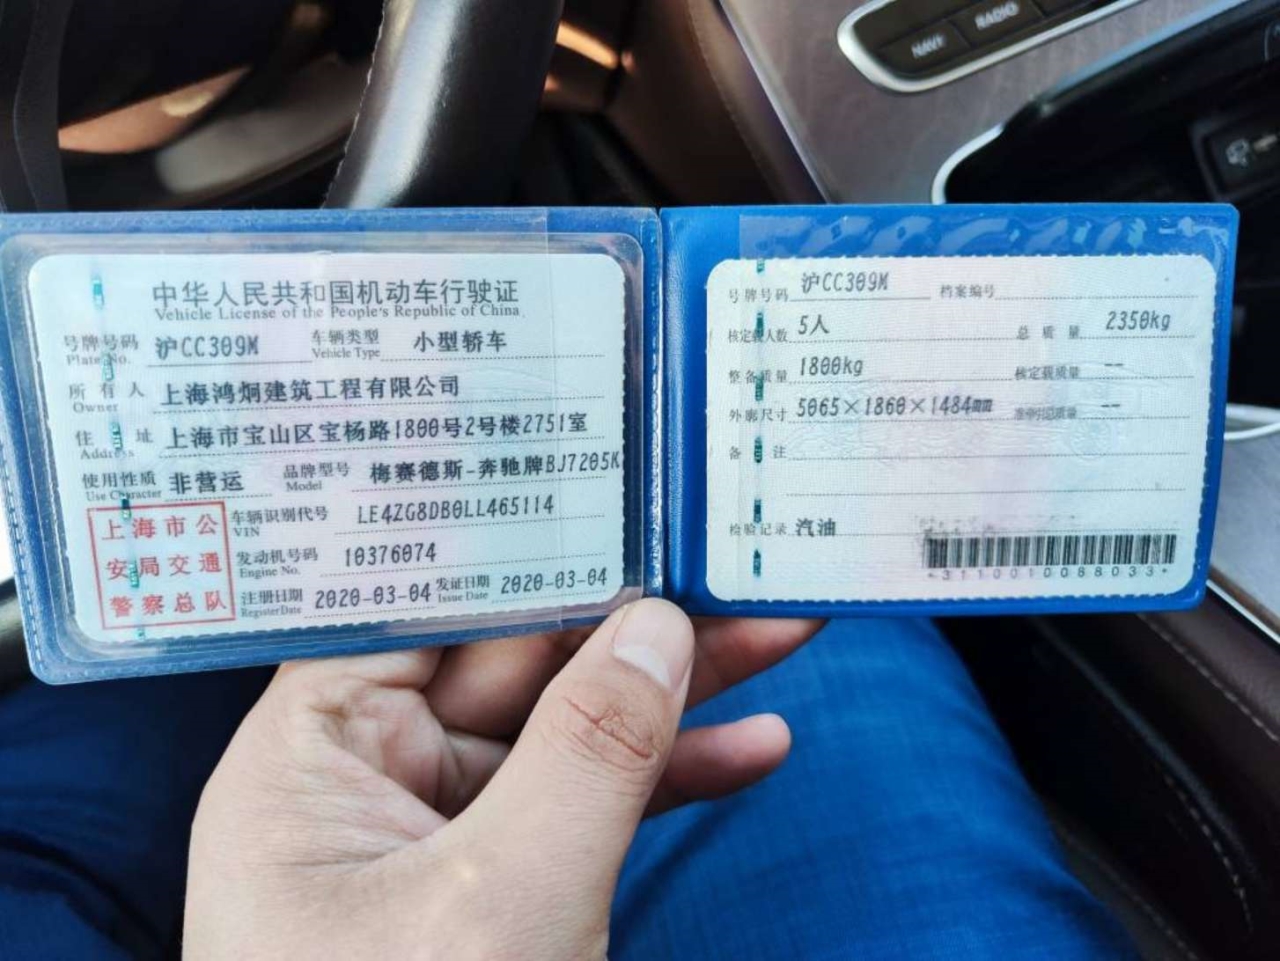 NAVI RADIO
中华人民共和国机动车行驶证
Vehicle License of the People's Republic of China
号牌号码 沪CC309M 车辆类型 小型轿车
Plate No. Vehicle Type
所有人 上海鸿炯建筑工程有限公司
Owner
住址 上海市宝山区宝杨路1800号2号楼2751室
Address
使用性质 非营运 品牌型号 梅赛德斯-奔驰牌BJ7205K
Use Character Model
上海市公
安局交通
警察总队
车辆识别代号 LE4ZG8DB0LL465114
VIN
发动机号码 10376074
Engine No.
注册日期 2020-03-04 发证日期 2020-03-04
Register Date Issue Date
号牌号码 沪CC309M 档案编号
核定载人数 5人 总质量 2350kg
整备质量 1800kg 核定载质量 --
外廓尺寸 5065×1860×1484mm 准牵引总质量 --
备注
检验记录 汽油
*3110010088033*